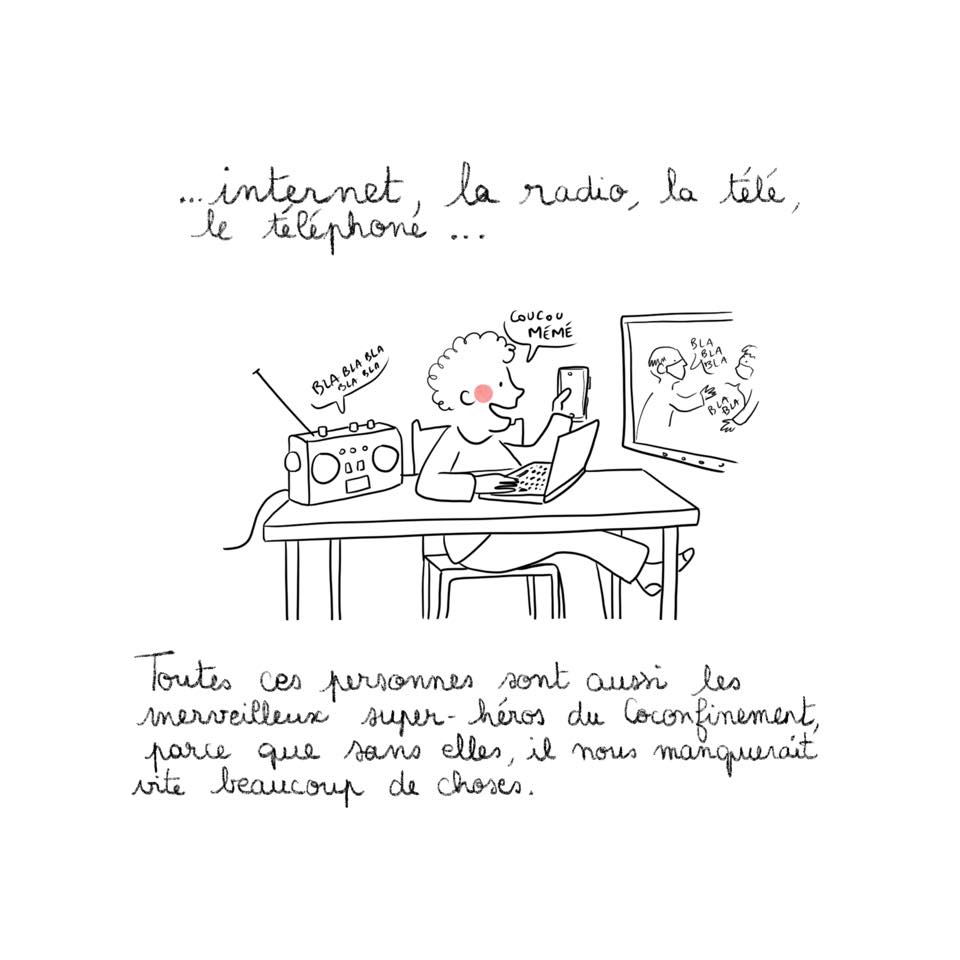 ...internet, la radio, la télé,
le téléphone ...
COUCOU
MÉMÉ
BLA BLA BLA
BLA BLA
BLA
BLA
BLA
BLA
BLA
Toutes ces personnes sont aussi les
merveilleux super-héros du Coconfinement,
parce que sans elles, il nous manquerait
vite beaucoup de choses.